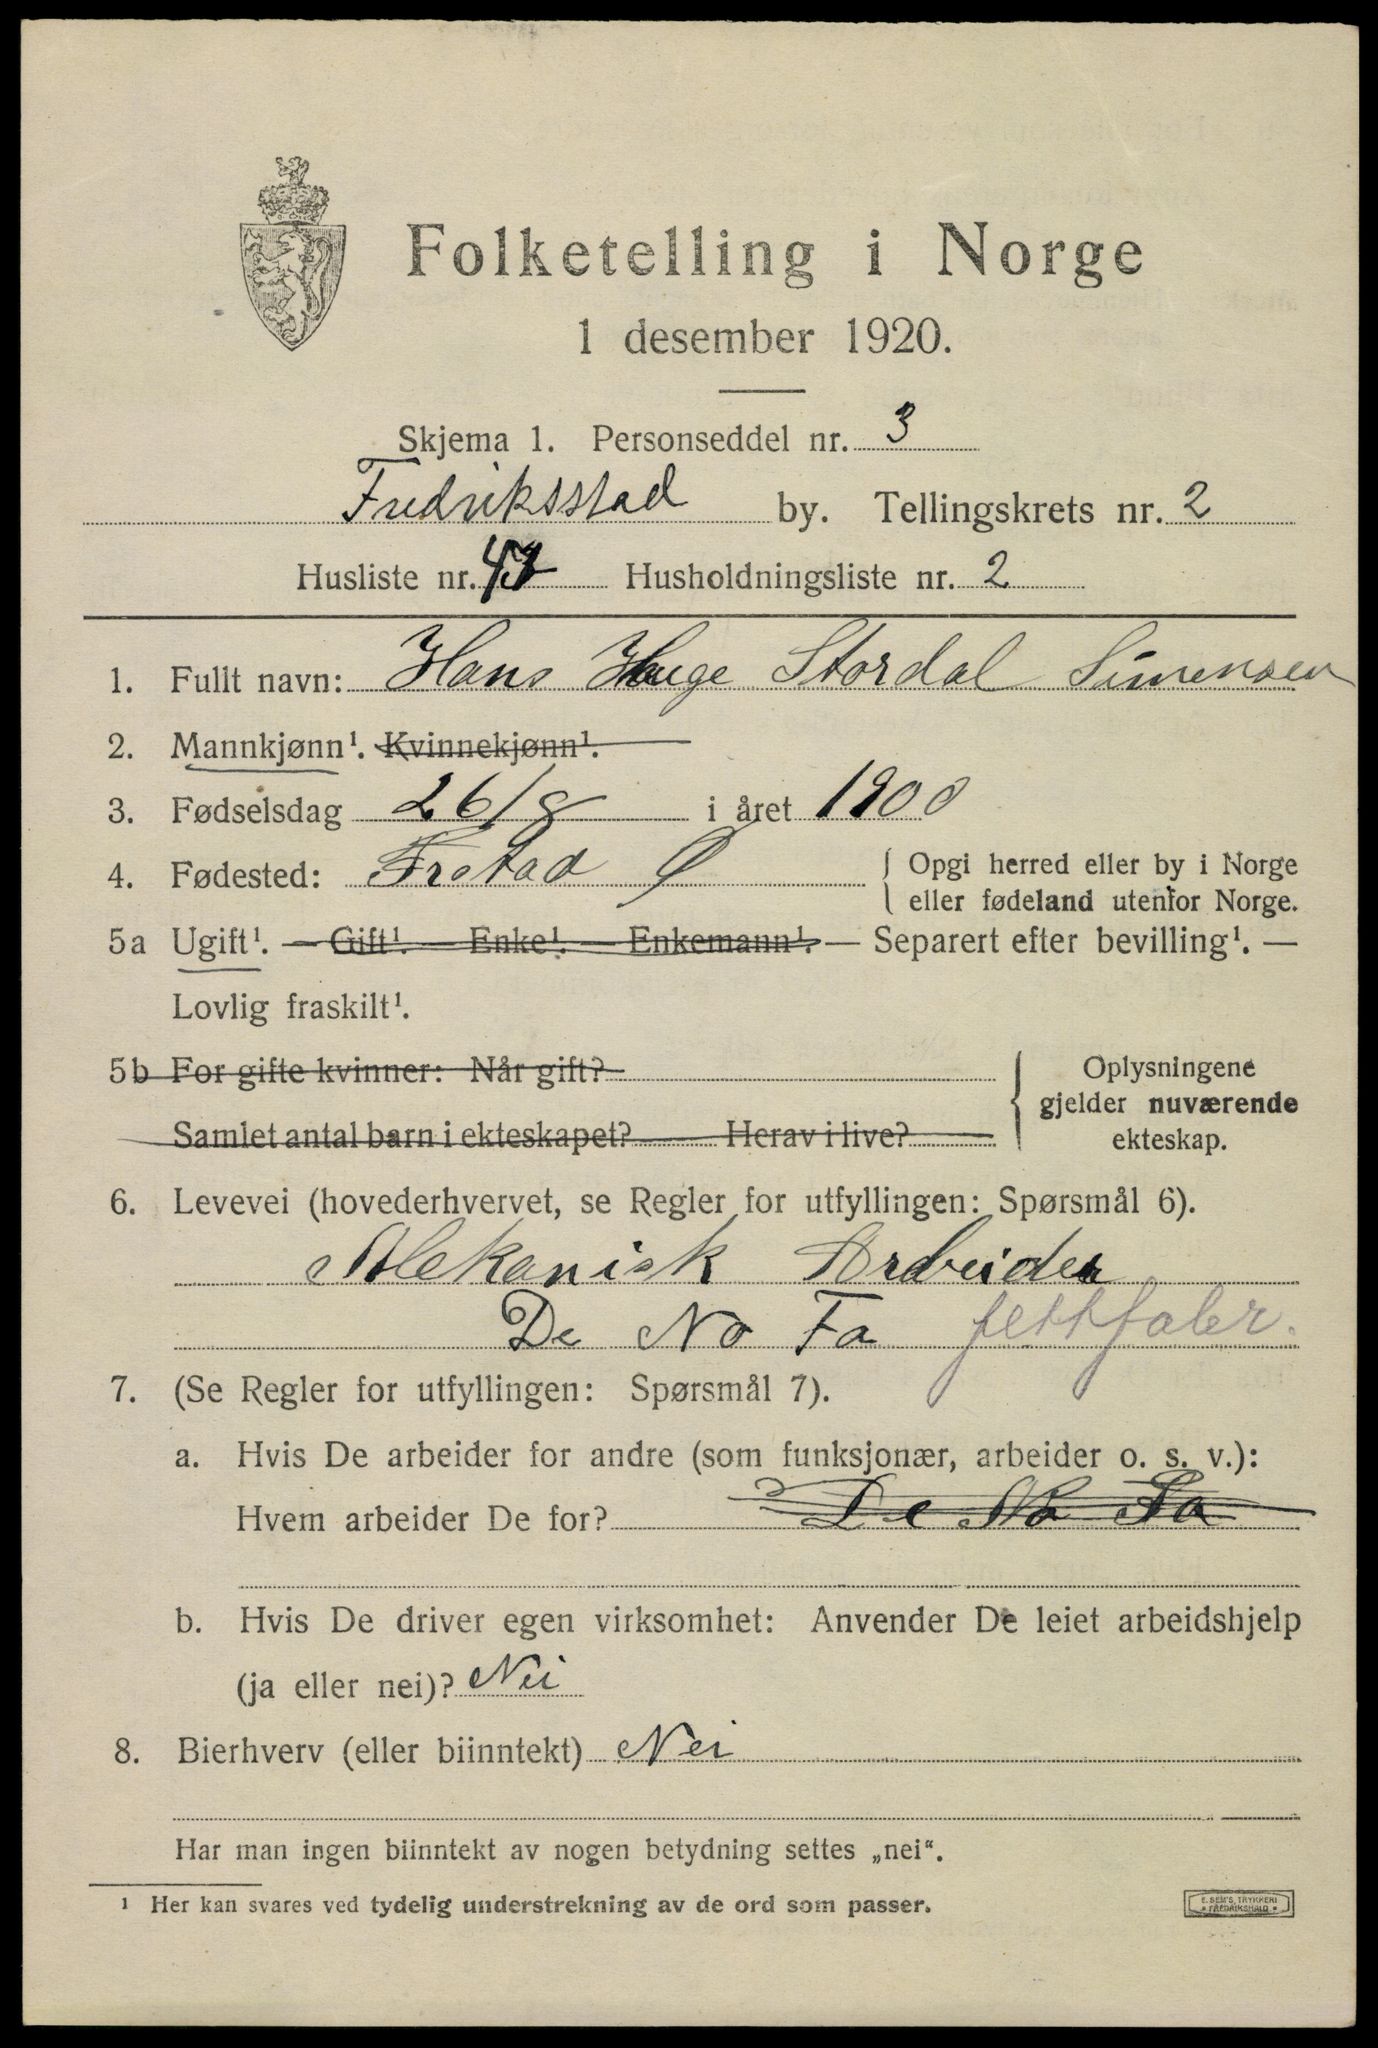 Folketelling i Norge
1 desember 1920.
Skjema 1. Personseddel nr. 3
Fredriksstad by. Tellingskrets nr. 2
Husliste nr. Husholdningsliste nr. 2
1. Fullt navn: Hans Hauge Stordal Simensen
2. Mannkjønn¹. Kvinnekjønn¹.
3. Fødselsdag 26/8 i året 1900
4. Fødested: Frstad Ø { Opgi herred eller by i Norge
eller fødeland utenfor Norge.
5a Ugift¹. — Gift¹. — Enke¹. — Enkemann¹. — Separert efter bevilling¹. —
Lovlig fraskilt¹.
5b For gifte kvinner: Når gift?
Samlet antal barn i ekteskapet? Herav i live?
Oplysningene
gjelder nuværende
ekteskap.
6. Levevei (hovederhvervet, se Regler for utfyllingen: Spørsmål 6).
Mekanisk Arbeider
De No Fa fettfabr.
7. (Se Regler for utfyllingen: Spørsmål 7).
a. Hvis De arbeider for andre (som funksjonær, arbeider o. s. v.):
Hvem arbeider De for? De No Fa
b. Hvis De driver egen virksomhet: Anvender De leiet arbeidshjelp
(ja eller nei)? Nei
8. Bierhverv (eller biinntekt) Nei
Har man ingen biinntekt av nogen betydning settes „nei“.
¹ Her kan svares ved tydelig understrekning av de ord som passer.
E. SEM'S TRYKKERI
FREDRIKSHALD